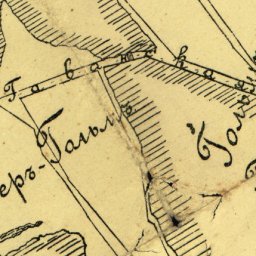 Гаванская
еръ-Гальмъ
Голь